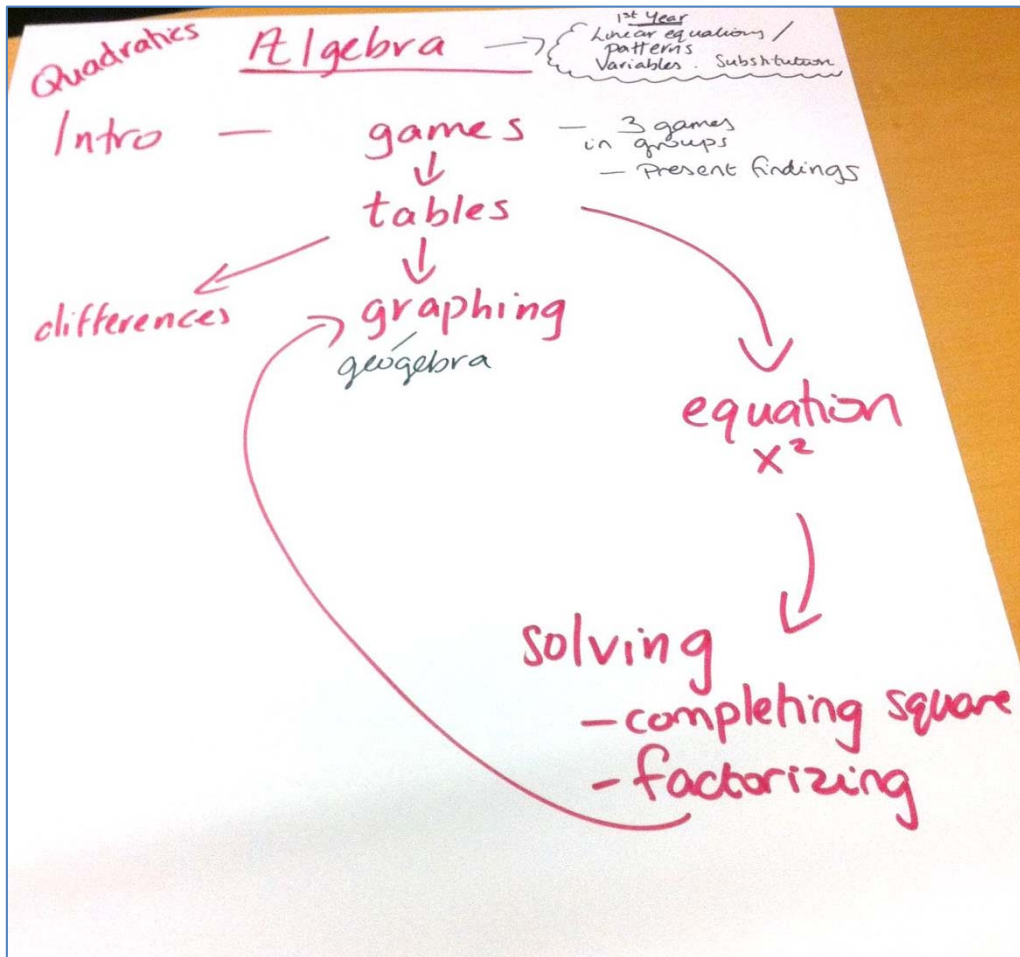 Quadratics
Algebra
1st Year
Linear equations /
patterns
Variables. Substitution
Intro — games — 3 games
in groups
— Present findings
tables
differences
graphing
geogebra
equation
x²
solving
— completing square
- factorizing